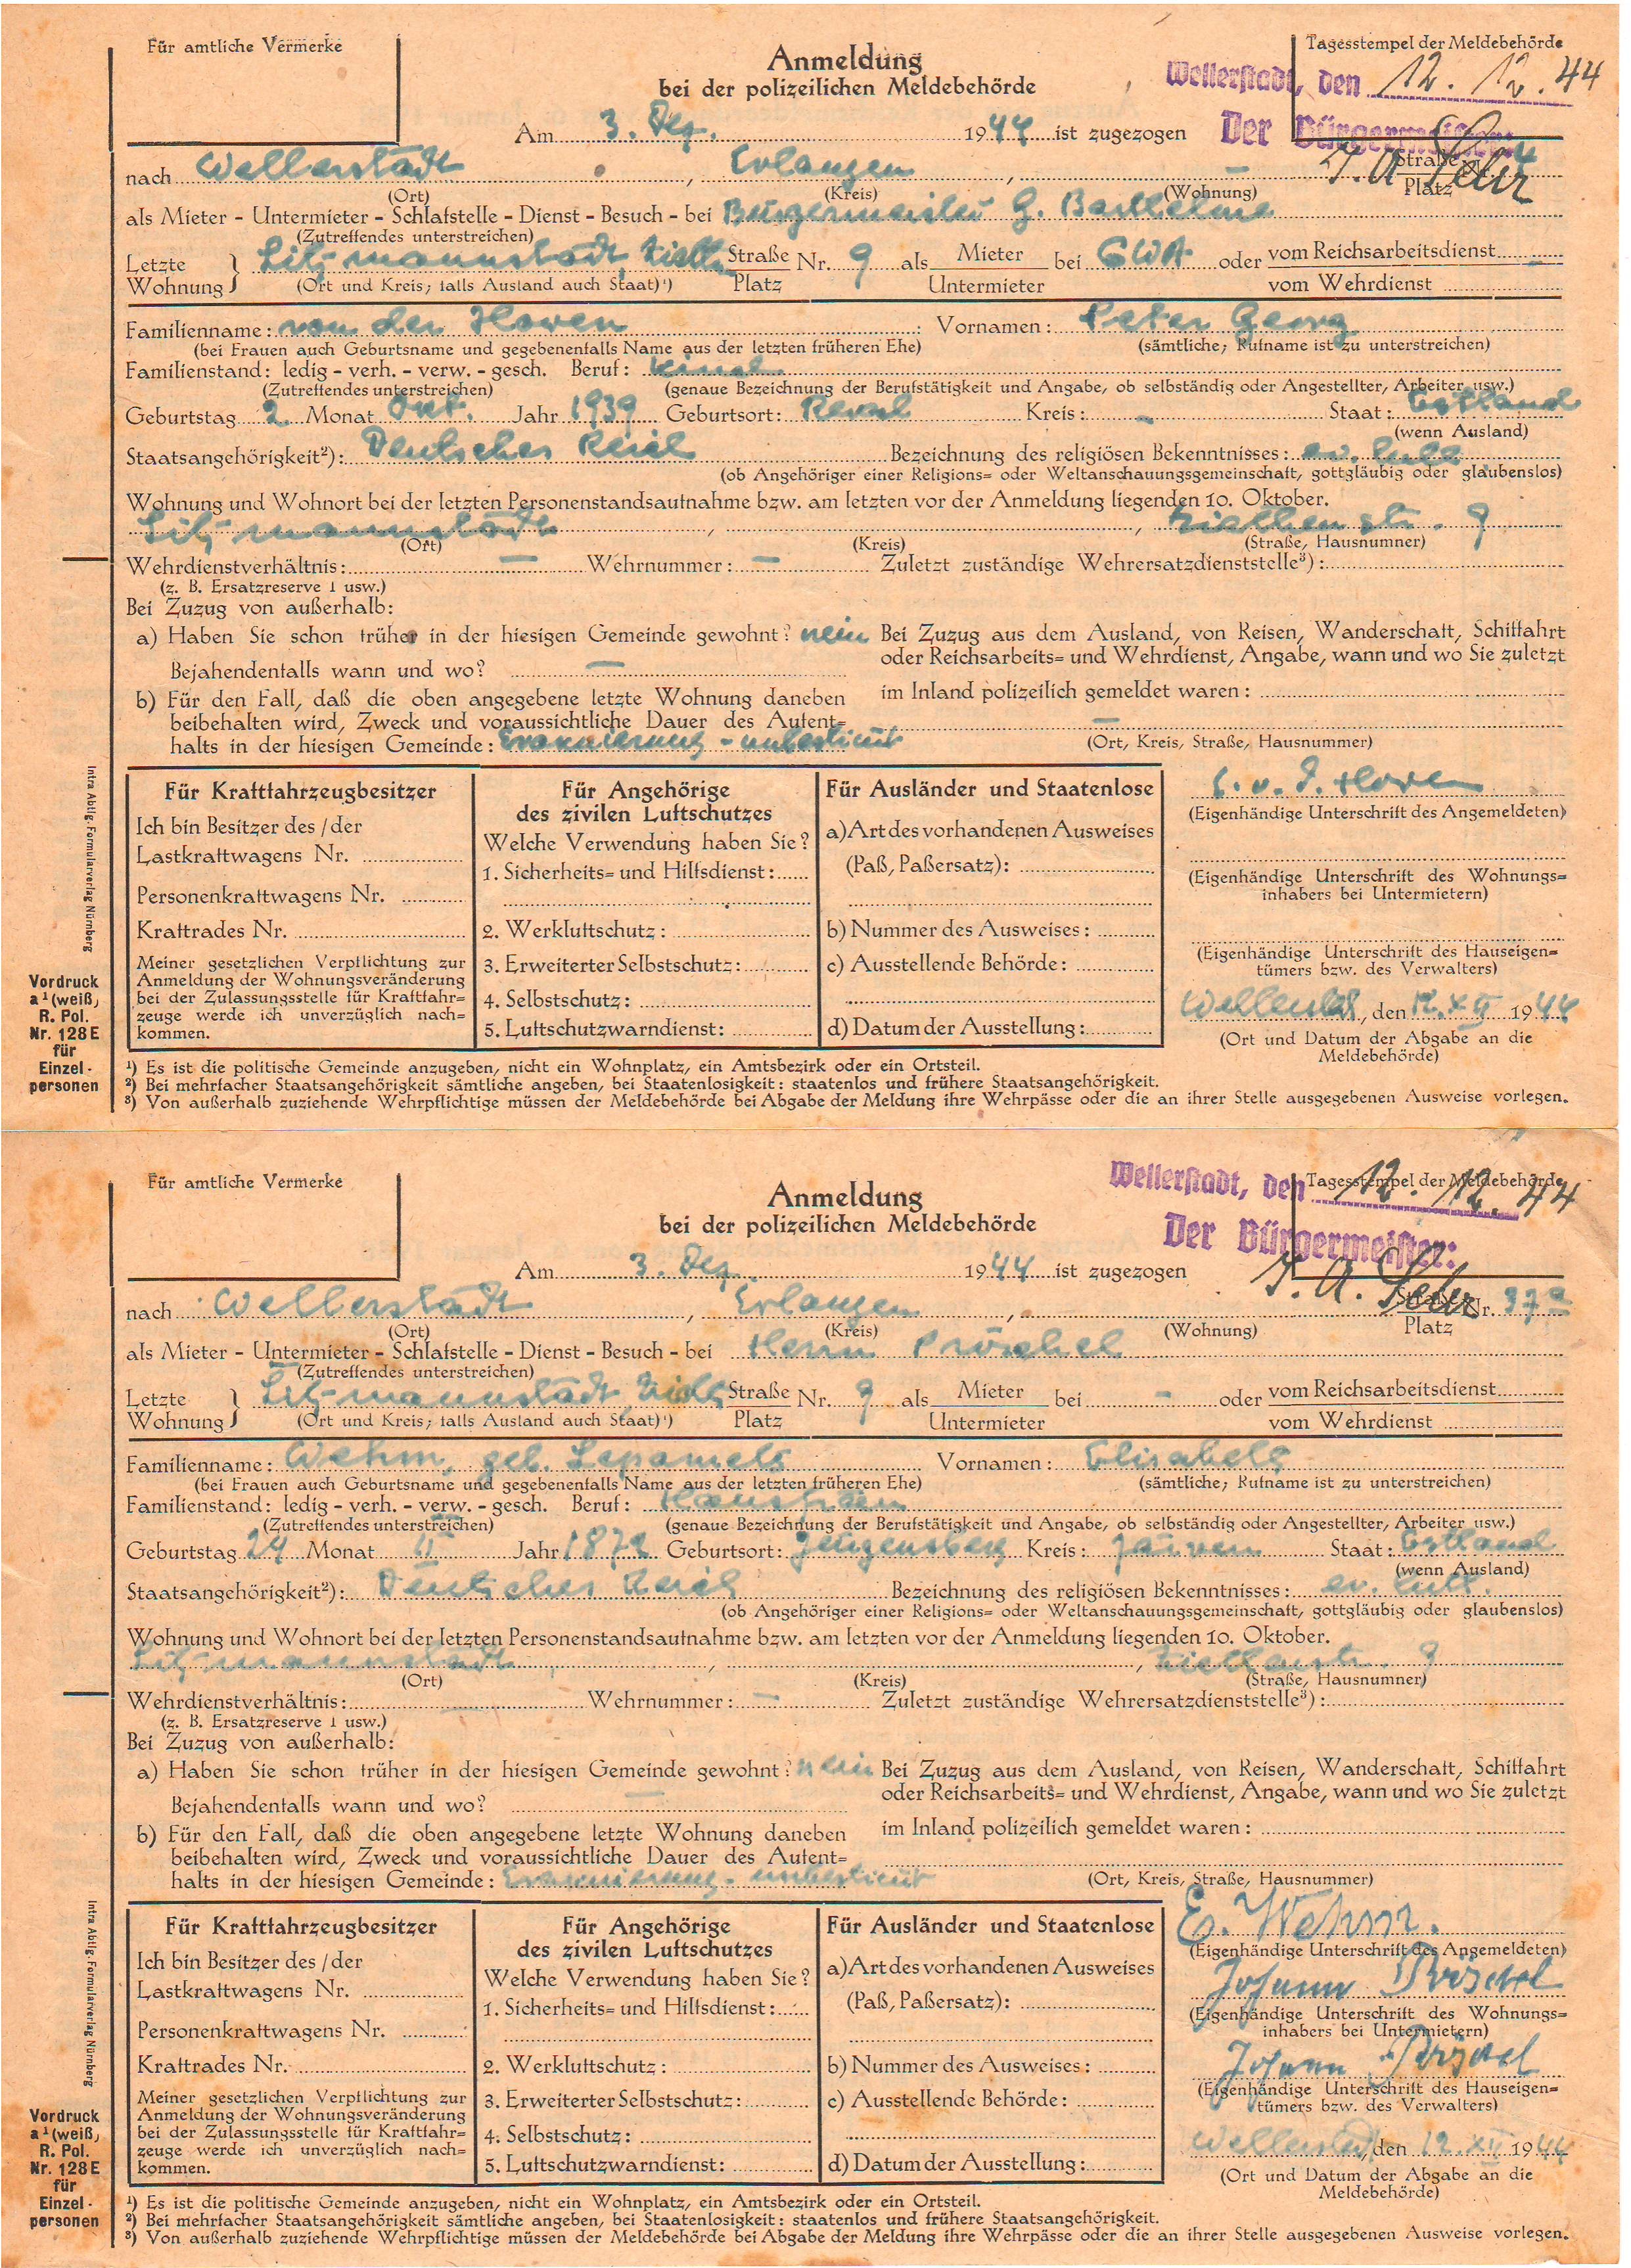 Für amtliche Vermerke
Anmeldung
bei der polizeilichen Meldebehörde
Tagesstempel der Meldebehörde
Wellerstadt, den 12. 12. 44
Der Bürgermeister:
Am 3. Dez. 1944 ist zugezogen
I. A.
Straße Nr. 4
Platz
nach Wellerstadt, Erlangen, –
(Ort) (Kreis) (Wohnung)
als Mieter - Untermieter - Schlafstelle - Dienst - Besuch - bei Bürgermeister G. Barthelme
(Zutreffendes unterstreichen)
Letzte Wohnung } Litzmannstadt, Straße Nr. 9 als Mieter bei GWA oder vom Reichsarbeitsdienst –
(Ort und Kreis; falls Ausland auch Staat)¹) Platz Untermieter vom Wehrdienst
Familienname: von der Hoven Vornamen: Peter Georg
(bei Frauen auch Geburtsname und gegebenenfalls Name aus der letzten früheren Ehe) (sämtliche; Rufname ist zu unterstreichen)
Familienstand: ledig - verh. - verw. - gesch. Beruf: Kind
(Zutreffendes unterstreichen) (genaue Bezeichnung der Berufstätigkeit und Angabe, ob selbständig oder Angestellter, Arbeiter usw.)
Geburtstag 2. Monat Okt. Jahr 1939 Geburtsort: Reval Kreis: – Staat: Estland
(wenn Ausland)
Staatsangehörigkeit²): Deutsches Reich Bezeichnung des religiösen Bekenntnisses: ev. luth
(ob Angehöriger einer Religions- oder Weltanschauungsgemeinschaft, gottgläubig oder glaubenslos)
Wohnung und Wohnort bei der letzten Personenstandsaufnahme bzw. am letzten vor der Anmeldung liegenden 10. Oktober.
Litzmannstadt, , 9
(Ort) (Kreis) (Straße, Hausnumner)
Wehrdienstverhältnis: – Wehrnummer: – Zuletzt zuständige Wehrersatzdienststelle³):
(z. B. Ersatzreserve I usw.)
Bei Zuzug von außerhalb:
a) Haben Sie schon früher in der hiesigen Gemeinde gewohnt? nein
Bejahendenfalls wann und wo? –
b) Für den Fall, daß die oben angegebene letzte Wohnung daneben
beibehalten wird, Zweck und voraussichtliche Dauer des Aufent-
halts in der hiesigen Gemeinde: Evakuierung - unbestimmt
Bei Zuzug aus dem Ausland, von Reisen, Wanderschaft, Schiffahrt
oder Reichsarbeits- und Wehrdienst, Angabe, wann und wo Sie zuletzt
im Inland polizeilich gemeldet waren:
–
(Ort, Kreis, Straße, Hausnummer)
Für Kraftfahrzeugbesitzer
Ich bin Besitzer des / der
Lastkraftwagens Nr.
Personenkraftwagens Nr.
Kraftrades Nr.
Meiner gesetzlichen Verpflichtung zur
Anmeldung der Wohnungsveränderung
bei der Zulassungsstelle für Kraftfahr-
zeuge werde ich unverzüglich nach-
kommen.
Für Angehörige
des zivilen Luftschutzes
Welche Verwendung haben Sie?
1. Sicherheits- und Hilfsdienst:
2. Werkluftschutz:
3. Erweiterter Selbstschutz:
4. Selbstschutz:
5. Luftschutzwarndienst:
Für Ausländer und Staatenlose
a) Art des vorhandenen Ausweises
(Paß, Paßersatz):
b) Nummer des Ausweises:
c) Ausstellende Behörde:
d) Datum der Ausstellung:
v. d. Hoven
(Eigenhändige Unterschrift des Angemeldeten)
(Eigenhändige Unterschrift des Wohnungs-
inhabers bei Untermietern)
(Eigenhändige Unterschrift des Hauseigen-
tümers bzw. des Verwalters)
Wellerstadt, den 12. XII 1944
(Ort und Datum der Abgabe an die
Meldebehörde)
Intra Abtlg. Formularverlag Nürnberg
Vordruck
a¹ (weiß)
R. Pol.
Nr. 128 E
für
Einzel-
personen
¹) Es ist die politische Gemeinde anzugeben, nicht ein Wohnplatz, ein Amtsbezirk oder ein Ortsteil.
²) Bei mehrfacher Staatsangehörigkeit sämtliche angeben, bei Staatenlosigkeit: staatenlos und frühere Staatsangehörigkeit.
³) Von außerhalb zuziehende Wehrpflichtige müssen der Meldebehörde bei Abgabe der Meldung ihre Wehrpässe oder die an ihrer Stelle ausgegebenen Ausweise vorlegen.
Für amtliche Vermerke
Anmeldung
bei der polizeilichen Meldebehörde
Tagesstempel der Meldebehörde
Wellerstadt, den 12. 12. 44
Der Bürgermeister:
Am 3. Dez. 1944 ist zugezogen
I. A.
Straße Nr. 37a
Platz
nach Wellerstadt, Erlangen,
(Ort) (Kreis) (Wohnung)
als Mieter - Untermieter - Schlafstelle - Dienst - Besuch - bei Herrn Pröschel
(Zutreffendes unterstreichen)
Letzte Wohnung } Litzmannstadt, Straße Nr. 9 als Mieter bei – oder vom Reichsarbeitsdienst
(Ort und Kreis; falls Ausland auch Staat)¹) Platz Untermieter vom Wehrdienst
Familienname: Wehm, geb. Vornamen: Elisabeth
(bei Frauen auch Geburtsname und gegebenenfalls Name aus der letzten früheren Ehe) (sämtliche; Rufname ist zu unterstreichen)
Familienstand: ledig - verh. - verw. - gesch. Beruf: Hausfrau
(Zutreffendes unterstreichen) (genaue Bezeichnung der Berufstätigkeit und Angabe, ob selbständig oder Angestellter, Arbeiter usw.)
Geburtstag 24 Monat II Jahr 1872 Geburtsort: Kreis: Järwen Staat: Estland
(wenn Ausland)
Staatsangehörigkeit²): Deutsches Reich Bezeichnung des religiösen Bekenntnisses: ev. luth.
(ob Angehöriger einer Religions- oder Weltanschauungsgemeinschaft, gottgläubig oder glaubenslos)
Wohnung und Wohnort bei der letzten Personenstandsaufnahme bzw. am letzten vor der Anmeldung liegenden 10. Oktober.
Litzmannstadt, , 9
(Ort) (Kreis) (Straße, Hausnumner)
Wehrdienstverhältnis: Wehrnummer: – Zuletzt zuständige Wehrersatzdienststelle³):
(z. B. Ersatzreserve I usw.)
Bei Zuzug von außerhalb:
a) Haben Sie schon früher in der hiesigen Gemeinde gewohnt? nein
Bejahendenfalls wann und wo? –
b) Für den Fall, daß die oben angegebene letzte Wohnung daneben
beibehalten wird, Zweck und voraussichtliche Dauer des Aufent-
halts in der hiesigen Gemeinde: Evakuierung - unbestimmt
Bei Zuzug aus dem Ausland, von Reisen, Wanderschaft, Schiffahrt
oder Reichsarbeits- und Wehrdienst, Angabe, wann und wo Sie zuletzt
im Inland polizeilich gemeldet waren:
(Ort, Kreis, Straße, Hausnummer)
Für Kraftfahrzeugbesitzer
Ich bin Besitzer des / der
Lastkraftwagens Nr.
Personenkraftwagens Nr.
Kraftrades Nr.
Meiner gesetzlichen Verpflichtung zur
Anmeldung der Wohnungsveränderung
bei der Zulassungsstelle für Kraftfahr-
zeuge werde ich unverzüglich nach-
kommen.
Für Angehörige
des zivilen Luftschutzes
Welche Verwendung haben Sie?
1. Sicherheits- und Hilfsdienst:
2. Werkluftschutz:
3. Erweiterter Selbstschutz:
4. Selbstschutz:
5. Luftschutzwarndienst:
Für Ausländer und Staatenlose
a) Art des vorhandenen Ausweises
(Paß, Paßersatz):
b) Nummer des Ausweises:
c) Ausstellende Behörde:
d) Datum der Ausstellung:
E. Wehm.
(Eigenhändige Unterschrift des Angemeldeten)
Johann Pröschel
(Eigenhändige Unterschrift des Wohnungs-
inhabers bei Untermietern)
Johann Pröschel
(Eigenhändige Unterschrift des Hauseigen-
tümers bzw. des Verwalters)
Wellerstadt, den 12. XII 1944
(Ort und Datum der Abgabe an die
Meldebehörde)
Intra Abtlg. Formularverlag Nürnberg
Vordruck
a¹ (weiß)
R. Pol.
Nr. 128 E
für
Einzel-
personen
¹) Es ist die politische Gemeinde anzugeben, nicht ein Wohnplatz, ein Amtsbezirk oder ein Ortsteil.
²) Bei mehrfacher Staatsangehörigkeit sämtliche angeben, bei Staatenlosigkeit: staatenlos und frühere Staatsangehörigkeit.
³) Von außerhalb zuziehende Wehrpflichtige müssen der Meldebehörde bei Abgabe der Meldung ihre Wehrpässe oder die an ihrer Stelle ausgegebenen Ausweise vorlegen.